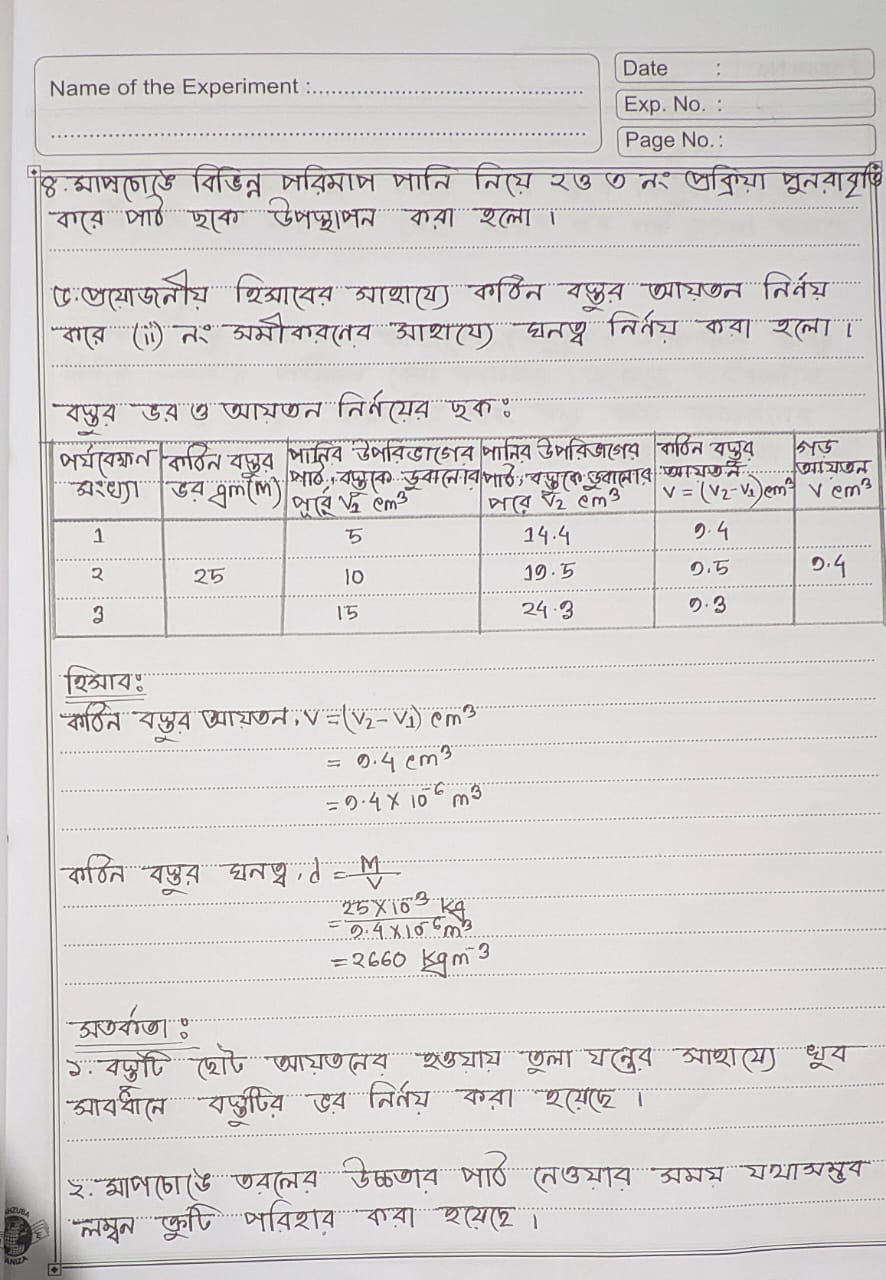 Name of the Experiment :
Date :
Exp. No. :
Page No. :
৪. মাপচোঙে বিভিন্ন পরিমাপ পানি নিয়ে ২ও ৩ নং প্রক্রিয়া পুনরাবৃত্তি
করে পাঠ ছকে উপস্থাপন করা হলো।
৫. প্রয়োজনীয় হিসাবের সাহায্যে কঠিন বস্তুর আয়তন নির্ণয়
করে (ii) নং সমীকরণের সাহায্যে ঘনত্ব নির্ণয় করা হলো।
বস্তুর ভর ও আয়তন নির্ণয়ের ছক:
পর্যবেক্ষণ সংখ্যা
কঠিন বস্তুর ভর gm(M)
পানির উপরিভাগের পাঠ, বস্তুকে ডুবানোর পূর্বে V₂ cm³
পানির উপরিভাগের পাঠ, বস্তুকে ডুবানোর পরে V₂ cm³
কঠিন বস্তুর আয়তন V = (V₂-V₁) cm³
গড় আয়তন V cm³
1 5 14.4 9.4
2 25 10 19.5 9.5 9.4
3 15 24.3 9.3
হিসাব:
কঠিন বস্তুর আয়তন, V = (V₂-V₁) cm³
= 9.4 cm³
= 9.4 × 10⁻⁶ m³
কঠিন বস্তুর ঘনত্ব, d = M/V
= 25×10⁻³ kg / 9.4×10⁻⁶ m³
= 2660 kgm⁻³
সতর্কতা:
১. বস্তুটি ছোট আয়তনের হওয়ায় তুলা যন্ত্রের সাহায্যে খুব
সাবধানে বস্তুটির ভর নির্ণয় করা হয়েছে।
২. মাপচোঙে তরলের উচ্চতার পাঠ নেওয়ার সময় যথাসম্ভব
লম্বন ত্রুটি পরিহার করা হয়েছে।